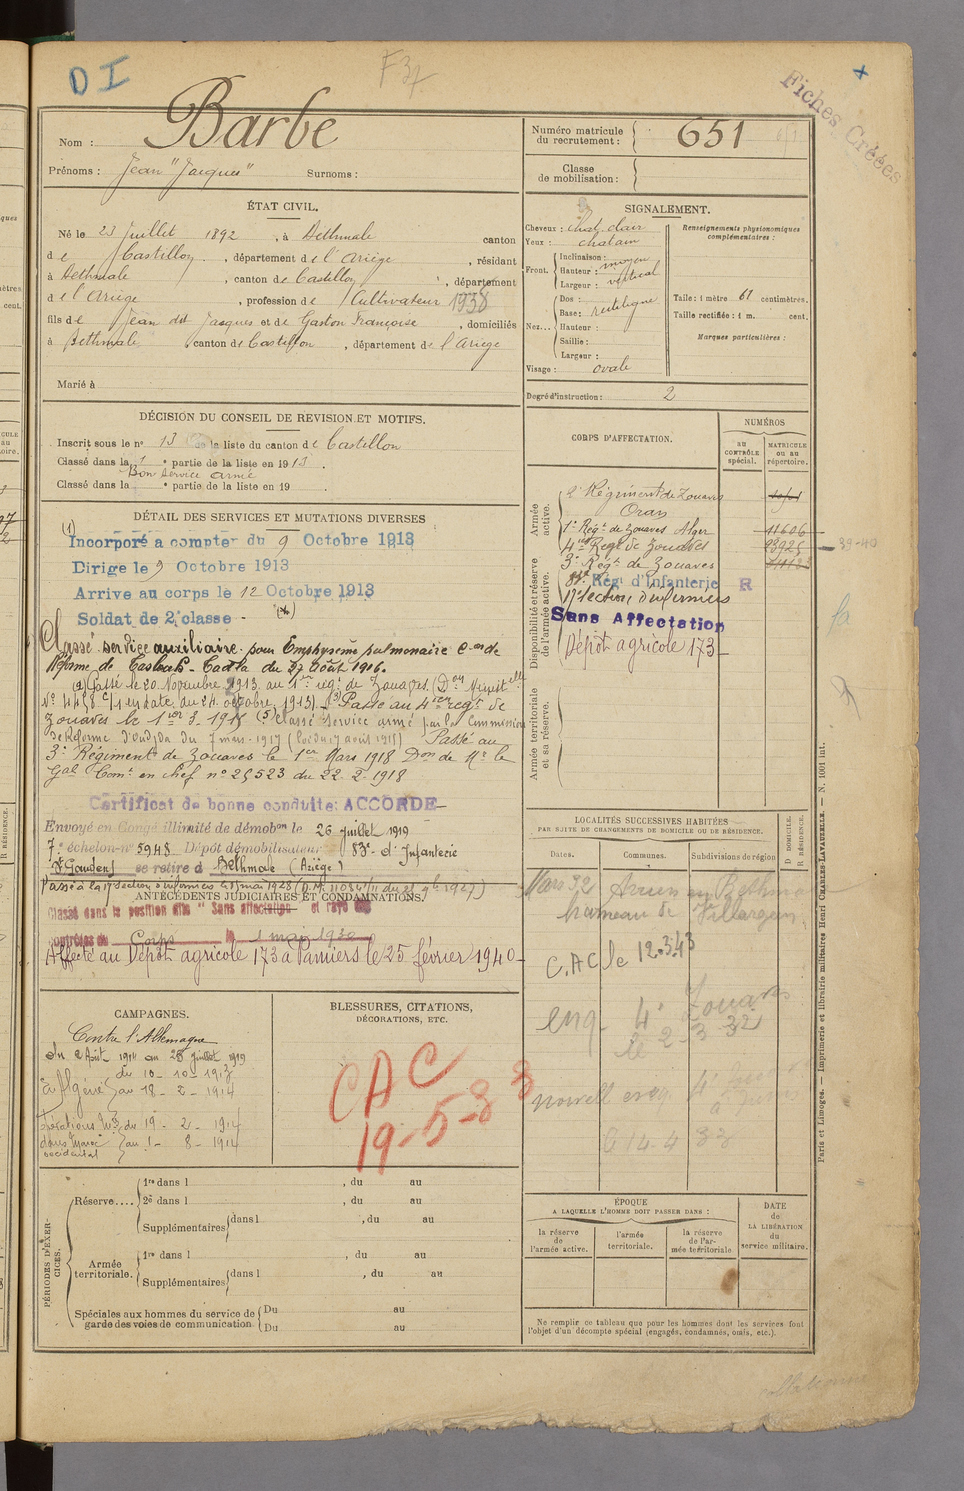 D I
F 37
Fiches Créées
Nom : Barbe
Prénoms : Jean "Jacques" Surnoms :
Numéro matricule du recrutement : 651
Classe de mobilisation :
ÉTAT CIVIL.
Né le 23 Juillet 1892, à Bethmale canton
de Castillon, département de l'Ariège, résidant
à Bethmale, canton de Castillon, département
de l'Ariège, profession de Cultivateur 1938
fils de Jean dit Jacques et de Gaston Françoise, domiciliés
à Bethmale, canton de Castillon, département de l'Ariège
Marié à
SIGNALEMENT.
Cheveux : chat. clair
Yeux : chatain
Front. Inclinaison : moyen
Hauteur : vertical
Largeur :
Nez... Dos : rectiligne
Base :
Hauteur :
Saillie :
Largeur :
Visage : ovale
Renseignements physionomiques complémentaires :
Taille : 1 mètre 61 centimètres.
Taille rectifiée : 1 m. cent.
Marques particulières :
Degré d'instruction : 2
DÉCISION DU CONSEIL DE REVISION ET MOTIFS.
Inscrit sous le n° 13 de la liste du canton de Castillon
Classé dans la 1e partie de la liste en 1913.
Bon service armé
Classé dans la e partie de la liste en 19 .
DÉTAIL DES SERVICES ET MUTATIONS DIVERSES
(1)
Incorporé a compter du 9 Octobre 1913
Dirige le 9 Octobre 1913
Arrive au corps le 12 Octobre 1913
Soldat de 2e classe -
Classé service auxiliaire pour Emphysème pulmonaire Con de
Réforme de Casbah-Tadla du 27 Août 1916.
(2) Passé le 20 Novembre 1913 au 1er régt de Zouaves. (Don Minist elle
N° 4458 c/1 en date du 24 octobre 1913). (3) Passé au 4ème régt de
Zouaves le 1er 3. 1915 (5) Classé service armé par la Commission
de Réforme d'Oudjda du 7 mars 1917 (loi du 17 août 1915) Passé au
3e Régiment de Zouaves le 1er Mars 1918 Don de Mr le
Gal Comt en chef n° 25523 du 22. 2. 1918
Certificat de bonne conduite: ACCORDE
Envoyé en Congé illimité de démobon le 26 juillet 1919
7e échelon n° 5948 Dépôt démobilisateur 83e d'Infanterie
St Gaudens se retire à Bethmale (Ariège)
Passé à la 17e section d'infirmiers le 1 mai 1928
ANTÉCÉDENTS JUDICIAIRES ET CONDAMNATIONS.
Classé dans la position dite "Sans affectation" et rayé des
contrôles du Corps le 1 mai 1930
Affecté au Dépôt agricole 173 à Pamiers le 25 février 1940
CORPS D'AFFECTATION.
NUMÉROS
au CONTRÔLE spécial.
MATRICULE ou au répertoire.
Armée active.
2e Régiment de Zouaves
Oran
1er Régt de Zouaves Alger 11606
4me Regt de Zouaves 39-40
3e Régt de Zouaves
Disponibilité et réserve de l'armée active.
83e Régt d'Infanterie R
17e Section d'infirmiers
Sans Affectation
Dépôt agricole 173
Armée territoriale et sa réserve.
LOCALITÉS SUCCESSIVES HABITÉES
PAR SUITE DE CHANGEMENTS DE DOMICILE OU DE RÉSIDENCE.
Dates. Communes. Subdivisions de région
D DOMICILE.
R RÉSIDENCE.
Mars 32
hameau de Villargein
C.A.C. le 12.3.43
eng. 4e Zouaves
le 2 3 32
CAMPAGNES.
Contre l'Allemagne
du 2 Août 1914 au 28 juillet 1919
en Algérie du 10 - 10 - 1913
au 18 - 2 - 1914
Opérations du 19 - 2 - 1914
dans Maroc occidental au 1 - 8 - 1914
BLESSURES, CITATIONS,
DÉCORATIONS, ETC.
CAC
19-5-33
PÉRIODES D'EXERCICES.
Réserve.... 1re dans l , du au
2e dans l , du au
Supplémentaires dans l , du au
Armée territoriale. 1re dans l , du au
Supplémentaires dans l , du au
Spéciales aux hommes du service de garde des voies de communication Du au
Du au
ÉPOQUE
A LAQUELLE L'HOMME DOIT PASSER DANS :
la réserve de l'armée active.
l'armée territoriale.
la réserve de l'armée territoriale
DATE de LA LIBÉRATION du service militaire.
Ne remplir ce tableau que pour les hommes dont les services font
l'objet d'un décompte spécial (engagés, condamnés, omis, etc.).
Paris et Limoges. — Imprimerie et librairie militaires Henri CHARLES-LAVAUZELLE. — N. 1001 int.